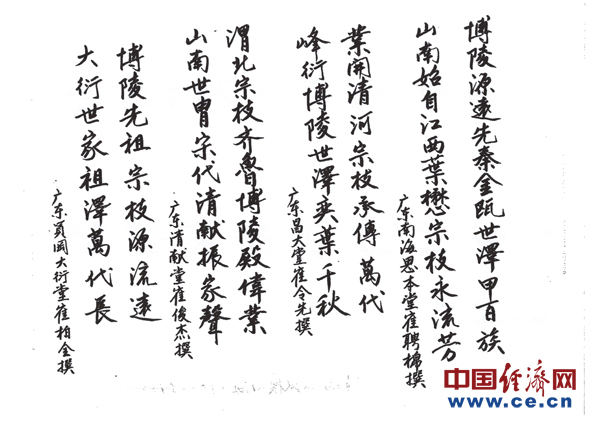 博陵源遠先秦金甌世澤甲百族
山南始自江西葉懋宗枝永流芳
广东南海思本堂崔聘棉撰
業開清河宗枝承傳萬代
峰衍博陵世澤奕葉千秋
广东昌大堂崔令先撰
渭北宗枝齐魯博陵殿偉業
山南世胄宗代清献振家聲
广东清献堂崔俊杰撰
博陵先祖宗枝源流遠
大衍世家祖澤萬代長
广东員岡大衍堂崔柏全撰
中国经济网
www.ce.cn